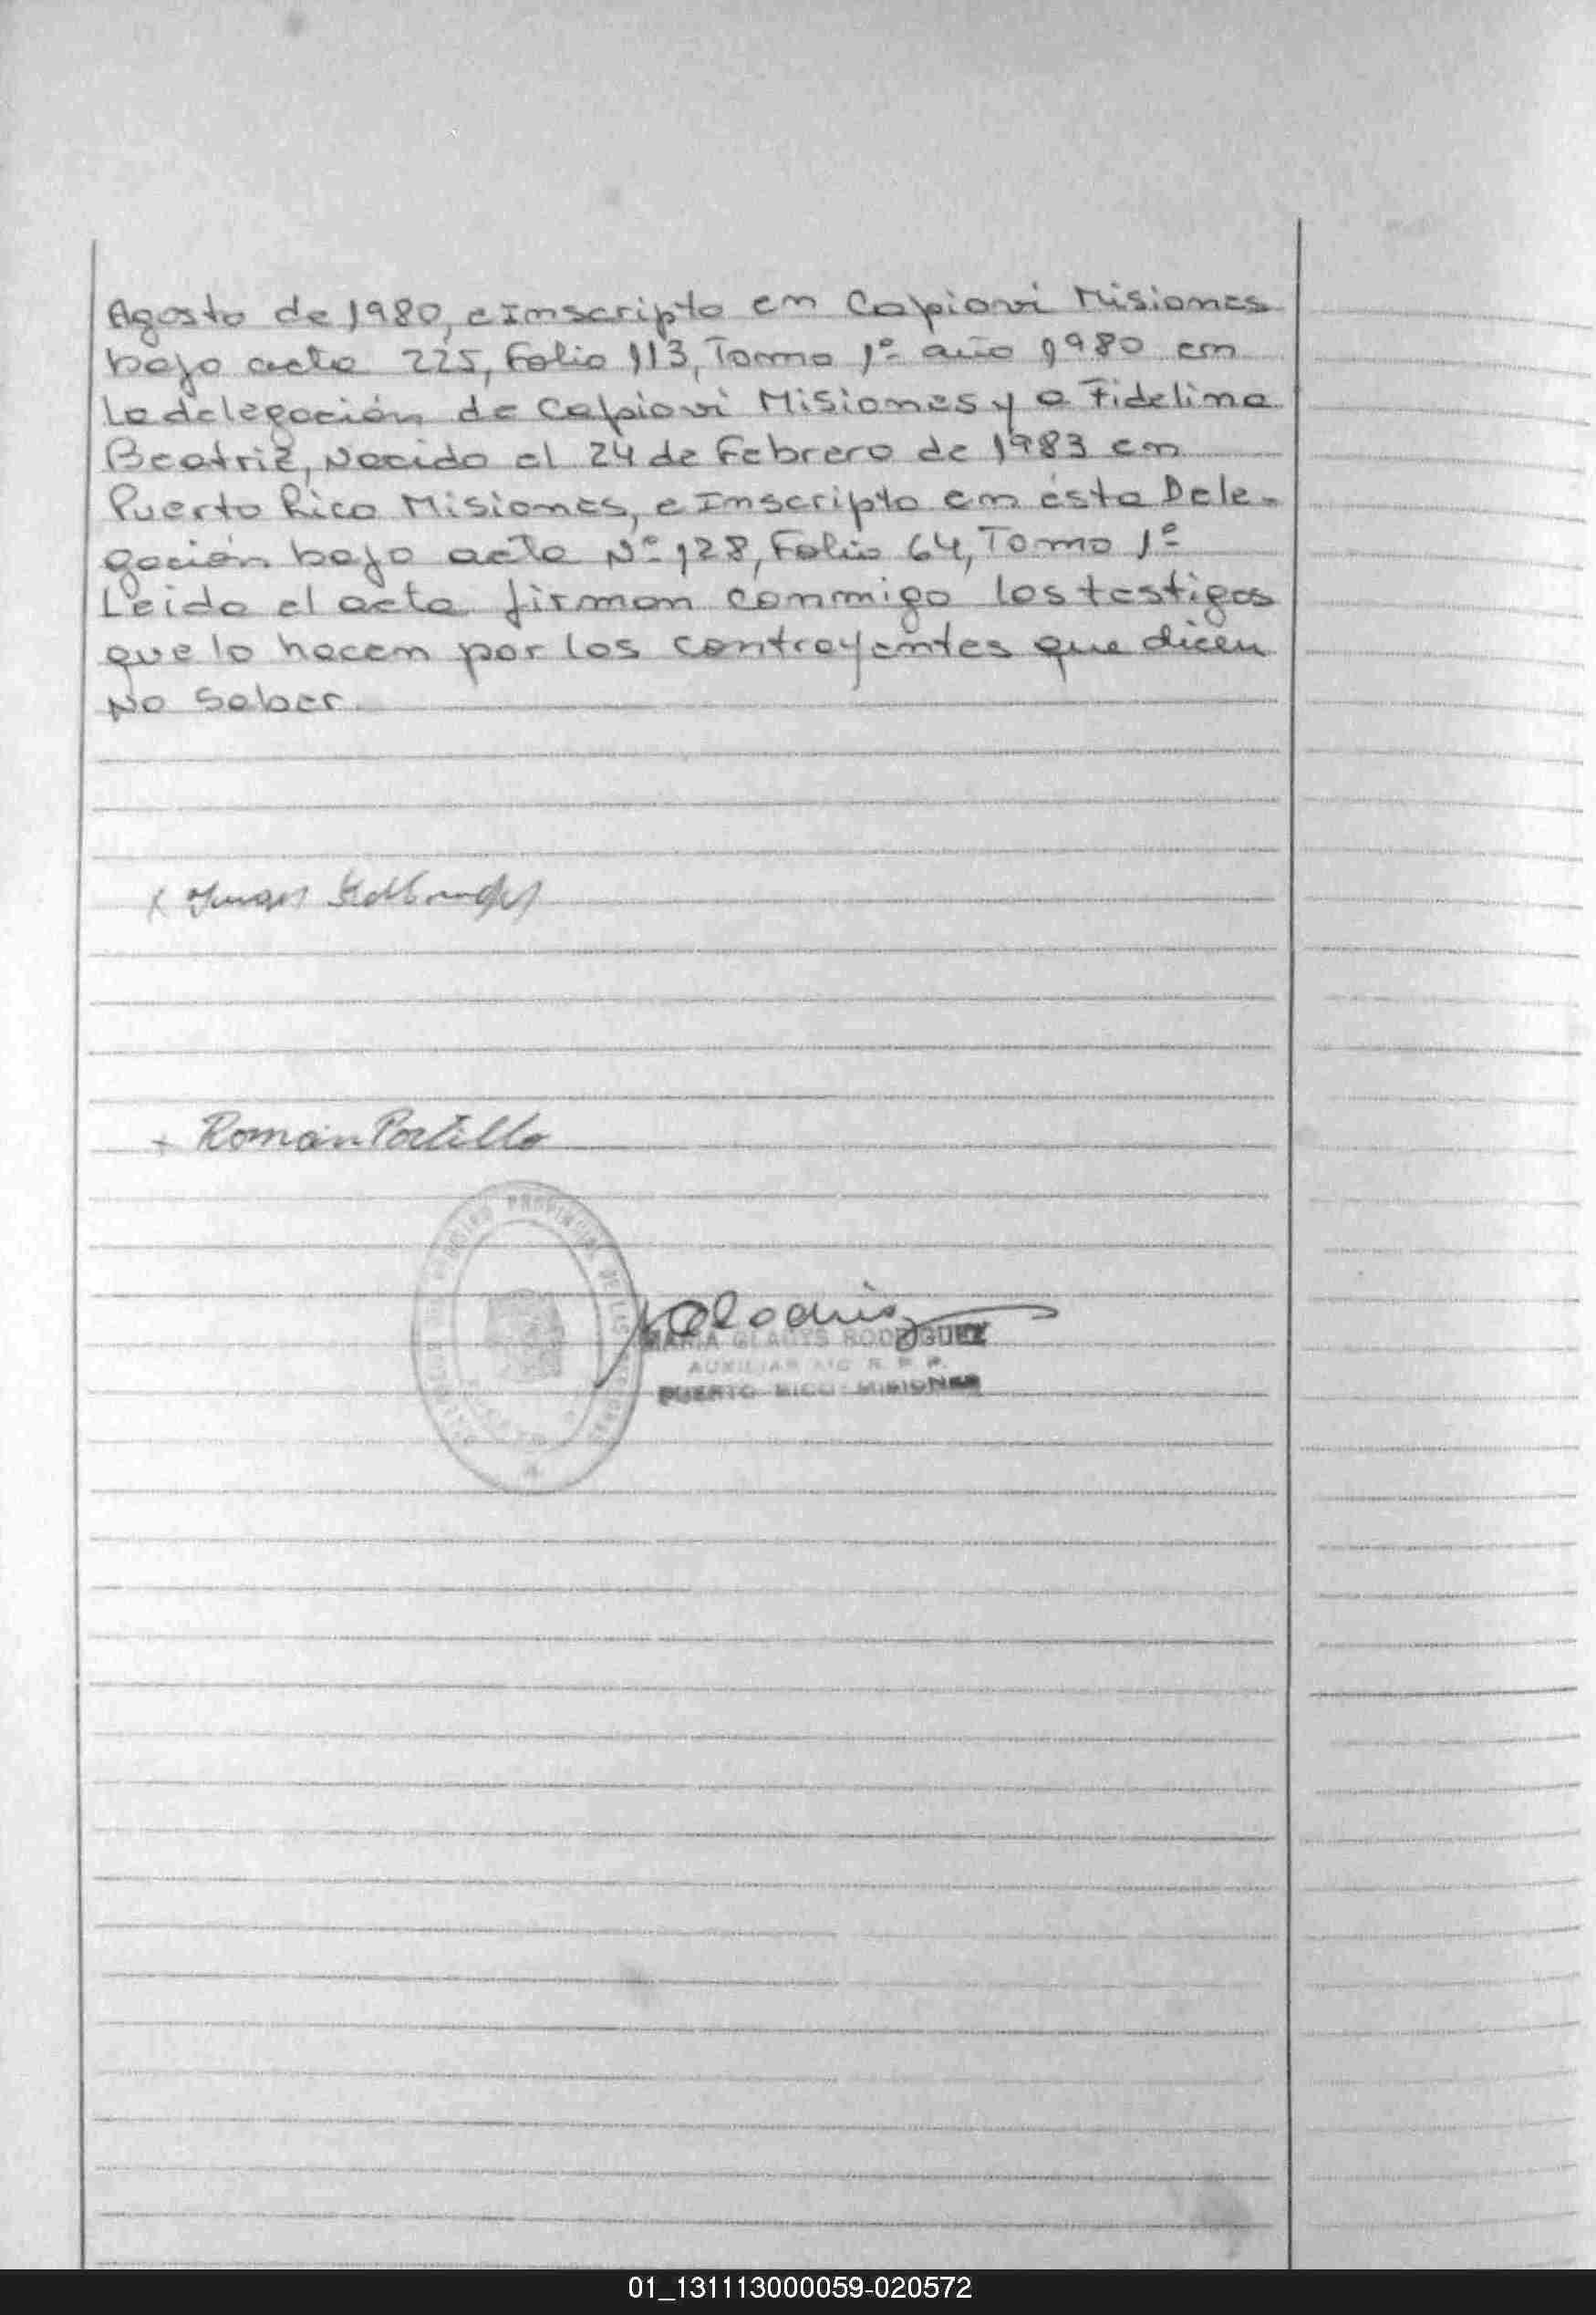 Agosto de 1980, e Inscripta en Capiovi Misiones
bajo acta 225, Folio 113, Tomo 1º año 1980 en
la delegación de Capiovi Misiones y a Fidelina
Beatriz, Nacida el 24 de Febrero de 1983 en
Puerto Rico Misiones, e Inscripta en ésta Dele-
gación bajo acta Nº 128, Folio 64, Tomo 1º
Leida el acta firman conmigo los testigos
que lo hacen por los contrayentes que dicen
No Saber.
Roman Portillo
PROVINCIAL DE LAS
MARIA GLADYS RODRIGUEZ
AUXILIAR A/C R. P. P.
PUERTO RICO - MISIONES
01_131113000059-020572